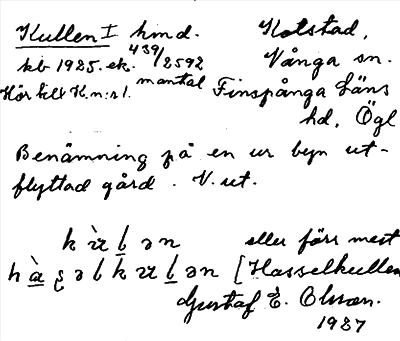 Kullen I hmd. Kolstad,
kb 1925. ek. 439/2592 mantal Vånga sn.
Hör till K. n:r 1. Finspånga Läns
hd, Ögl
Benämning på en ur byn ut-
flyttad gård. V. ut.
eller förr mest
[Hasselkullen
Gustaf E. Olsson.
1927